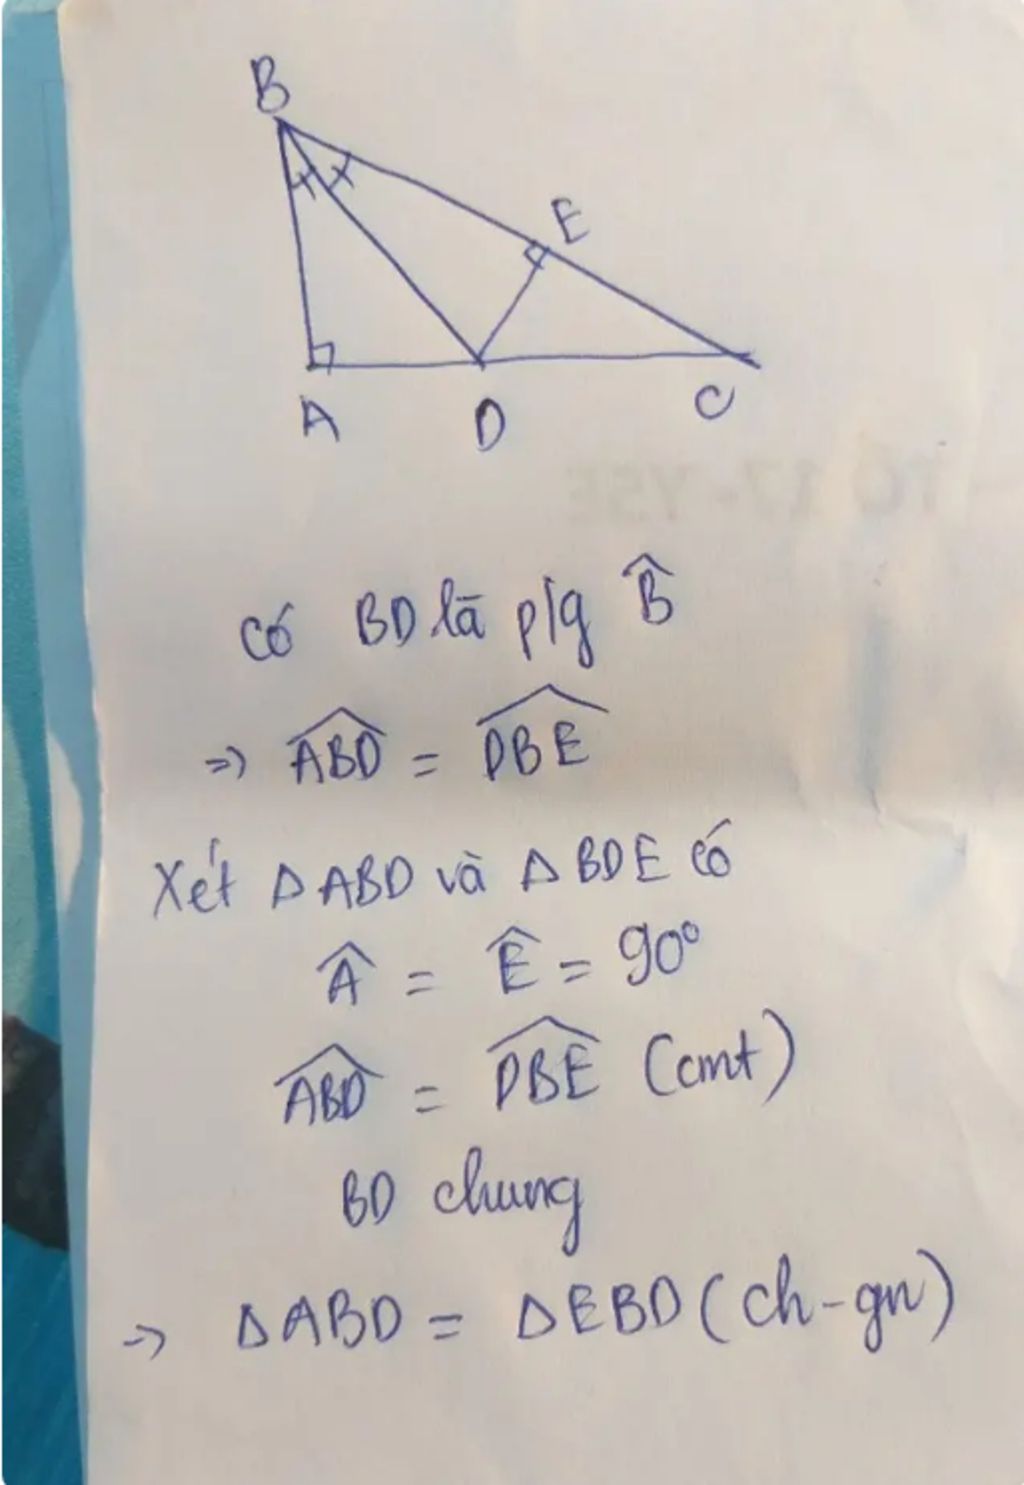 B
E
A D C
TỔ 17-Y5E
Có BD là p/g B̂
=> ABD̂ = DBÊ
Xét ΔABD và ΔBDE có
Â = Ê = 90°
ABD̂ = DBÊ (cmt)
BD chung
=> ΔABD = ΔEBD (ch-gn)